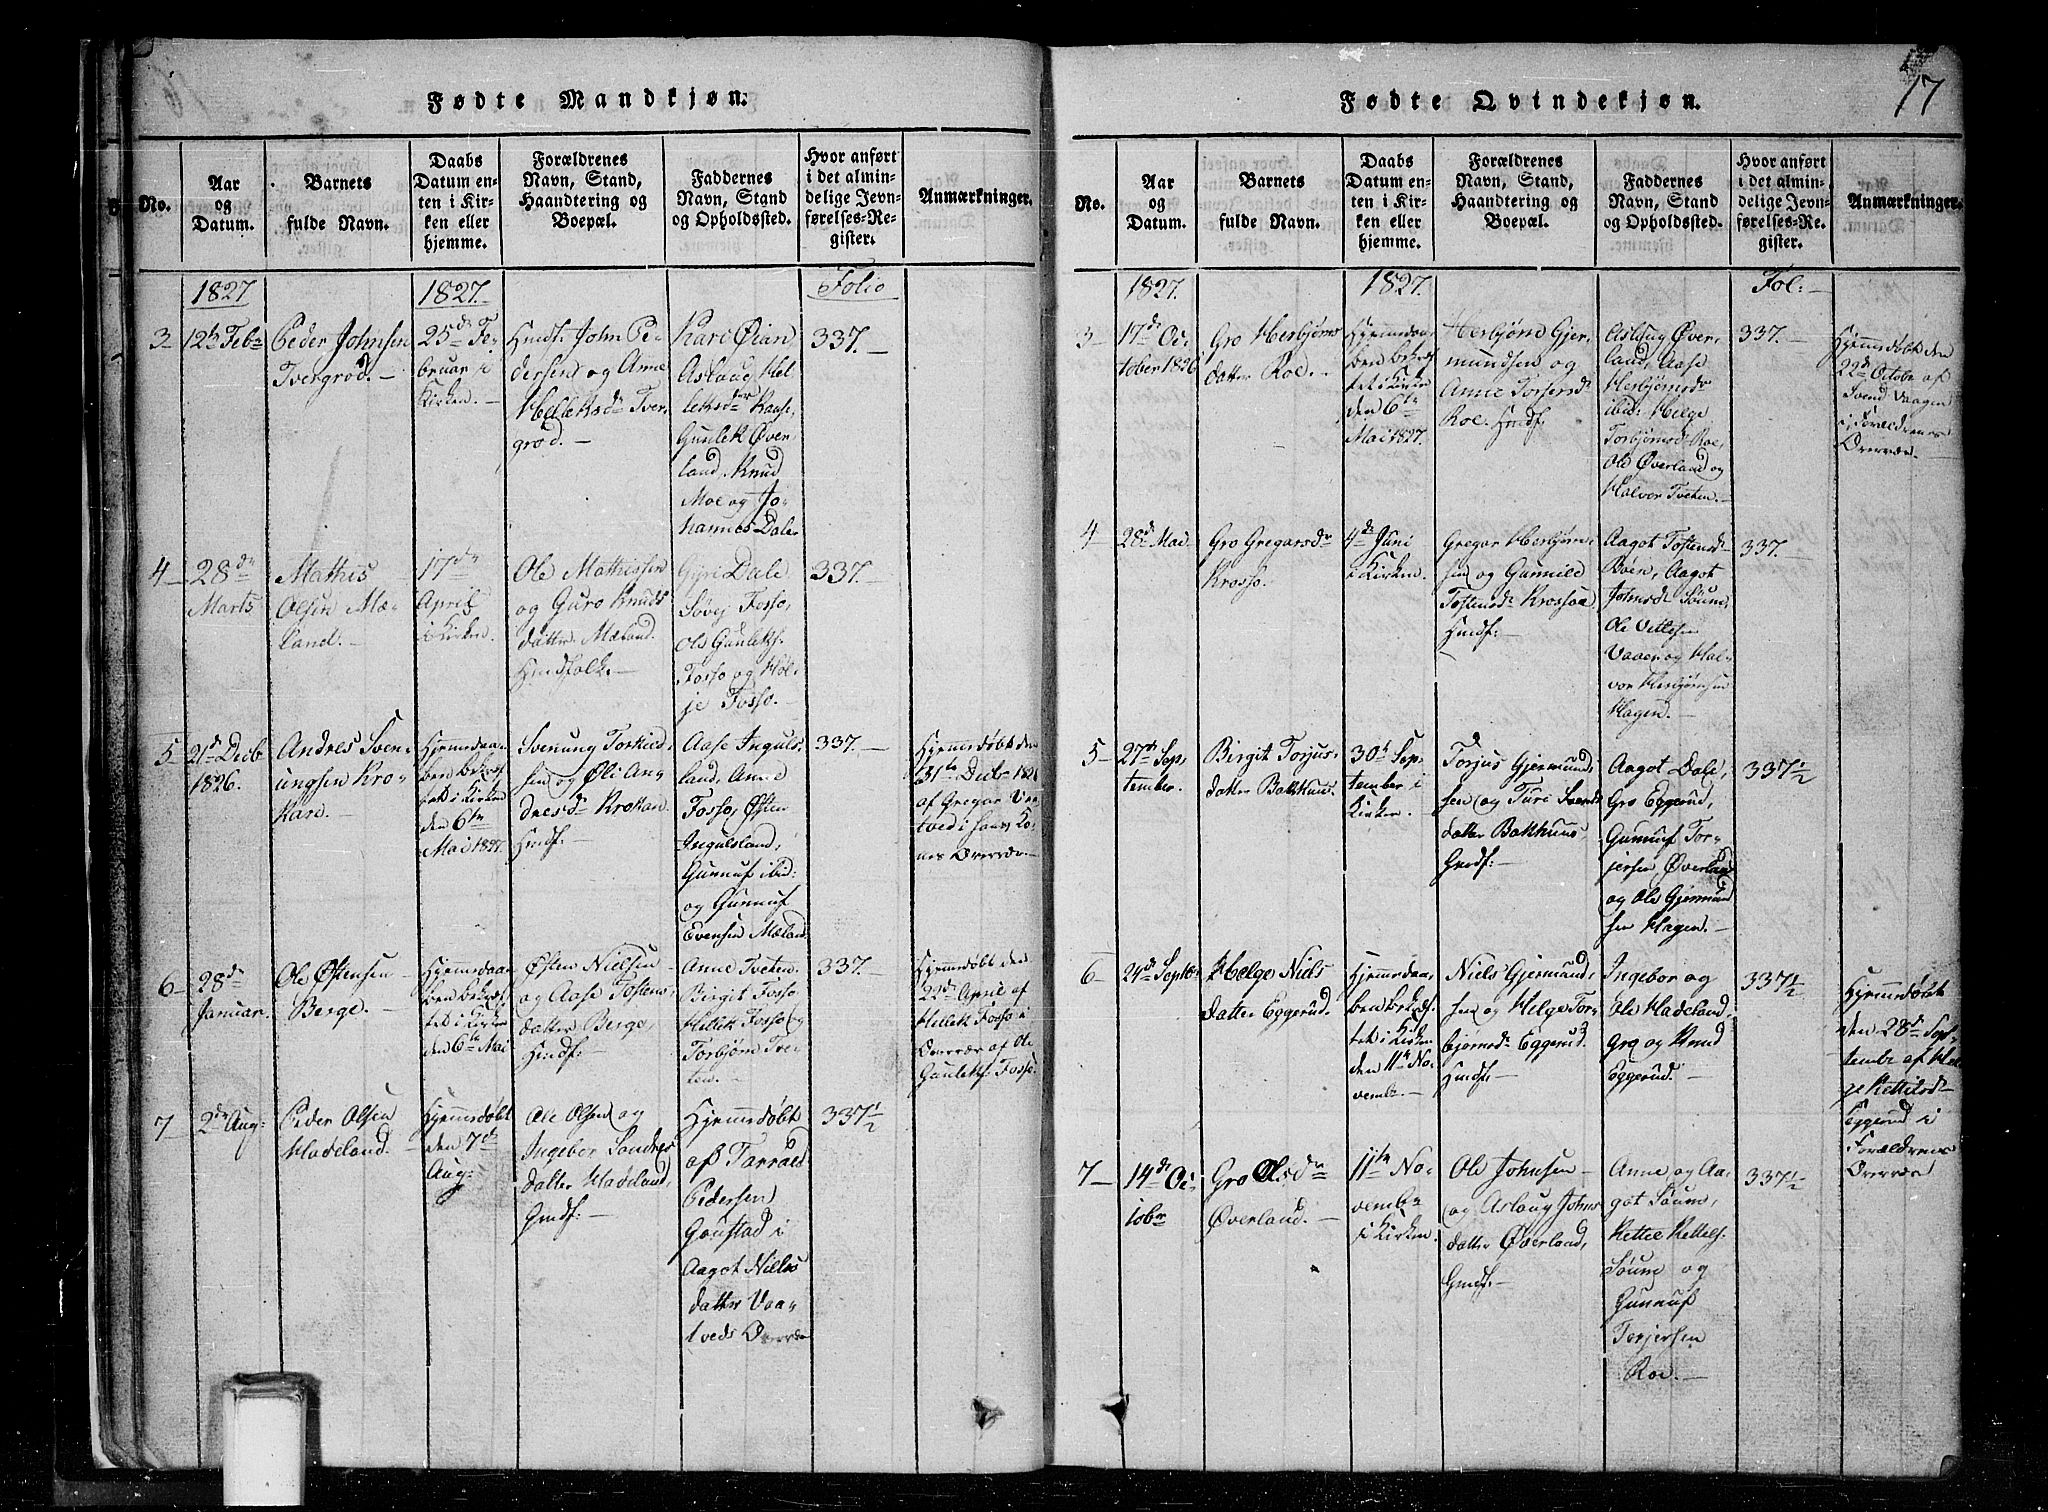 Fødte Mandkjøn.
No.
Aar
og
Datum.
Barnets
fulde Navn.
Daabs
Datum en-
ten i Kir-
ken eller
hjemme.
Forældrenes
Navn, Stand,
Haandtering og
Boepæl.
Faddernes
Navn, Stand
og Opholdssted.
Hvor anført
i det almin-
delige Jevn-
førelses-Re-
gister.
Anmærkninger.
1827
1827.
Folio
3
12te Febr
Peder Johnsen
Tvergrod.
25de Fe-
bruar i
Kirken.
Huusf. John Pe-
dersen og Anne
Helleksdr Tver-
grod.
Kari Øian
Aslaug Hel-
leksdr Kaase
Gunlek Øver-
land, Knud
Moe og Jo-
hannes Dale
337.
4
28de
Marts
Mathis
Olsen Mæ-
land.
17de
April
i Kirken.
Ole Mathissen
og Guro Knuds
datter Mæland.
Huusfolk.
Gyri Dale
Søvej Fosso,
Ole Gunleks.
Fosso og Høl-
je Fosso.
337.
5
21de Decb
1826.
Andres Sven-
ungsen Kro-
kan.
Hjemmedaa-
ben bekræf-
tet i Kirken
den 6te
Mai 1827.
Svenung Torkild-
sen og Øli An-
dresdr Krokan
Huusf:
Aase Inguls-
land, Anne
Fosso, Østen
Ingulsland,
Gunnuf ibid:
og Gunnuf
Evensen Mæland
337.
Hjemmedøbt den
31te Decbr 1826
af Gregar Vaa-
tved i hans Ko-
nes Overvær.
6
28de
Januar.
Ole Østensen
Berge.
Hjemmedaa-
ben bekræf-
tet i Kirken
den 6te Mai
Østen Nielsen
og Aase Tostens
datter Berge,
Huusf:
Anne Tveten
Birgit Fosso
Hellek Fosso og
Torbjørn Tve-
ten.
337.
Hjemmedøbt den
22de April af
Hellek Fosso i
Overvær af Ole
Gunleks: Fosso.
7
2de Aug:
Peder Olsen
Hadeland.
Hjemmedøbt
den 7de
Aug:
Ole Olsen og
Ingebor Sondres
datter Hadeland,
Huusf:
Hjemmedøbt
af Tarrald
Pedersen
Gaustad i
Aagot Niels
datter Vaa-
tveds Overvær
337½
17
Fødte Qvindekjøn.
No.
Aar
og
Datum.
Barnets
fulde Navn.
Daabs
Datum en-
ten i Kir-
ken eller
hjemme.
Forældrenes
Navn, Stand,
Haandtering og
Boepæl.
Faddernes
Navn, Stand
og Opholdssted.
Hvor anført
i det almin-
delige Jevn-
førelses-Re-
gister.
Anmærkninger.
1827.
1827.
Fol:
3
17de Oc-
tober 1826
Gro Herbjørns
datter Roe.
Hjemmedaa-
ben bekræf-
tet i Kirken
den 6te
Mai 1827.
Herbjørn Gjer-
mundsen og
Anne Torsensd
Roe. Huusf:
Aslaug Øver-
land, Aase
Herbjørnsd
ibid: Helge
Torbjørnsd Roe,
Ole Øverland og
Halvor Tveten.
337.
Hjemmedøbt den
22de Octobr af
Svend Vaagen
i Forældrenes
Overvær.
4
28de Mai.
Gro Gregarsdr
Krosso.
4de Juni
i Kirken.
Gregar Herbjørn-
sen og Gunnild
Tostensdr Krossoe
Huusf:
Aagot Tostensd
Boen, Aagot
Johnsd Søum,
Ole Vetlesen
Vaaer og Hal-
vor Herbjørnsen
Hagen.
337.
5
27de Sep-
tember.
Birgit Torjus-
datter Bakhuus.
30te Sep-
tember i
Kirken.
Torjus Gjermund-
sen og Turi Svends
datter Bakhuus,
Huusf:
Aagot Dale,
Gro Eggerud,
Gunnuf Tor-
jersen Øverland
og Ole Gjermund
sen Hagen.
337½
6
24de Septbr
Helge Niels
datter Eggerud.
Hjemmedaa-
ben bekræf-
tet i Kirken
den 11te No-
vembr.
Niels Gjermund-
sen og Helge Tor-
bjørnsdr Eggerud.
Huusf:
Ingebor og
Ole Hadeland,
Gro og Knud
Eggerud.
337½
Hjemmedøbt
den 28de Sep-
tembr af Høl-
je Kettilsd
Eggerud i
Forældrenes
Overvær
7
14de Oc-
tobr
Gro Olsdr
Øverland.
11te No-
vembr
i Kirken.
Ole Johnsen
og Aslaug Johns
datter Øverland,
Huusf:
Anne og Aa-
got Søum,
Kettel Kettels.
Søum og
Gunnuf
Torjersen
Roe.
337½